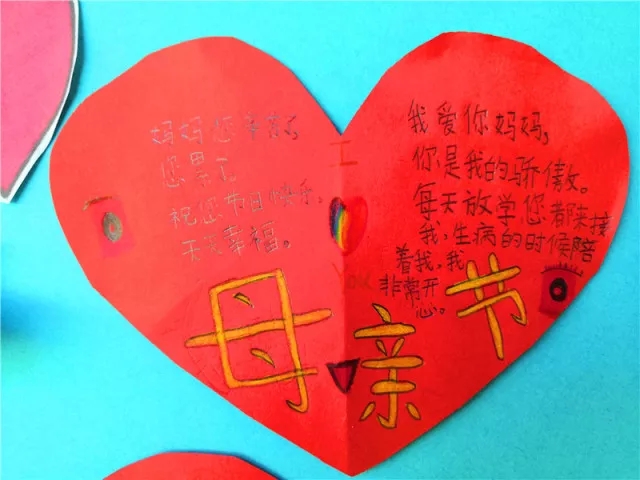 妈妈您辛苦了,
您累了
祝您节日快乐,
天天幸福。
I
You
我爱你妈妈,
你是我的骄傲。
每天放学您都来接
我,生病的时候陪
着我,我
非常开
心。
母亲节